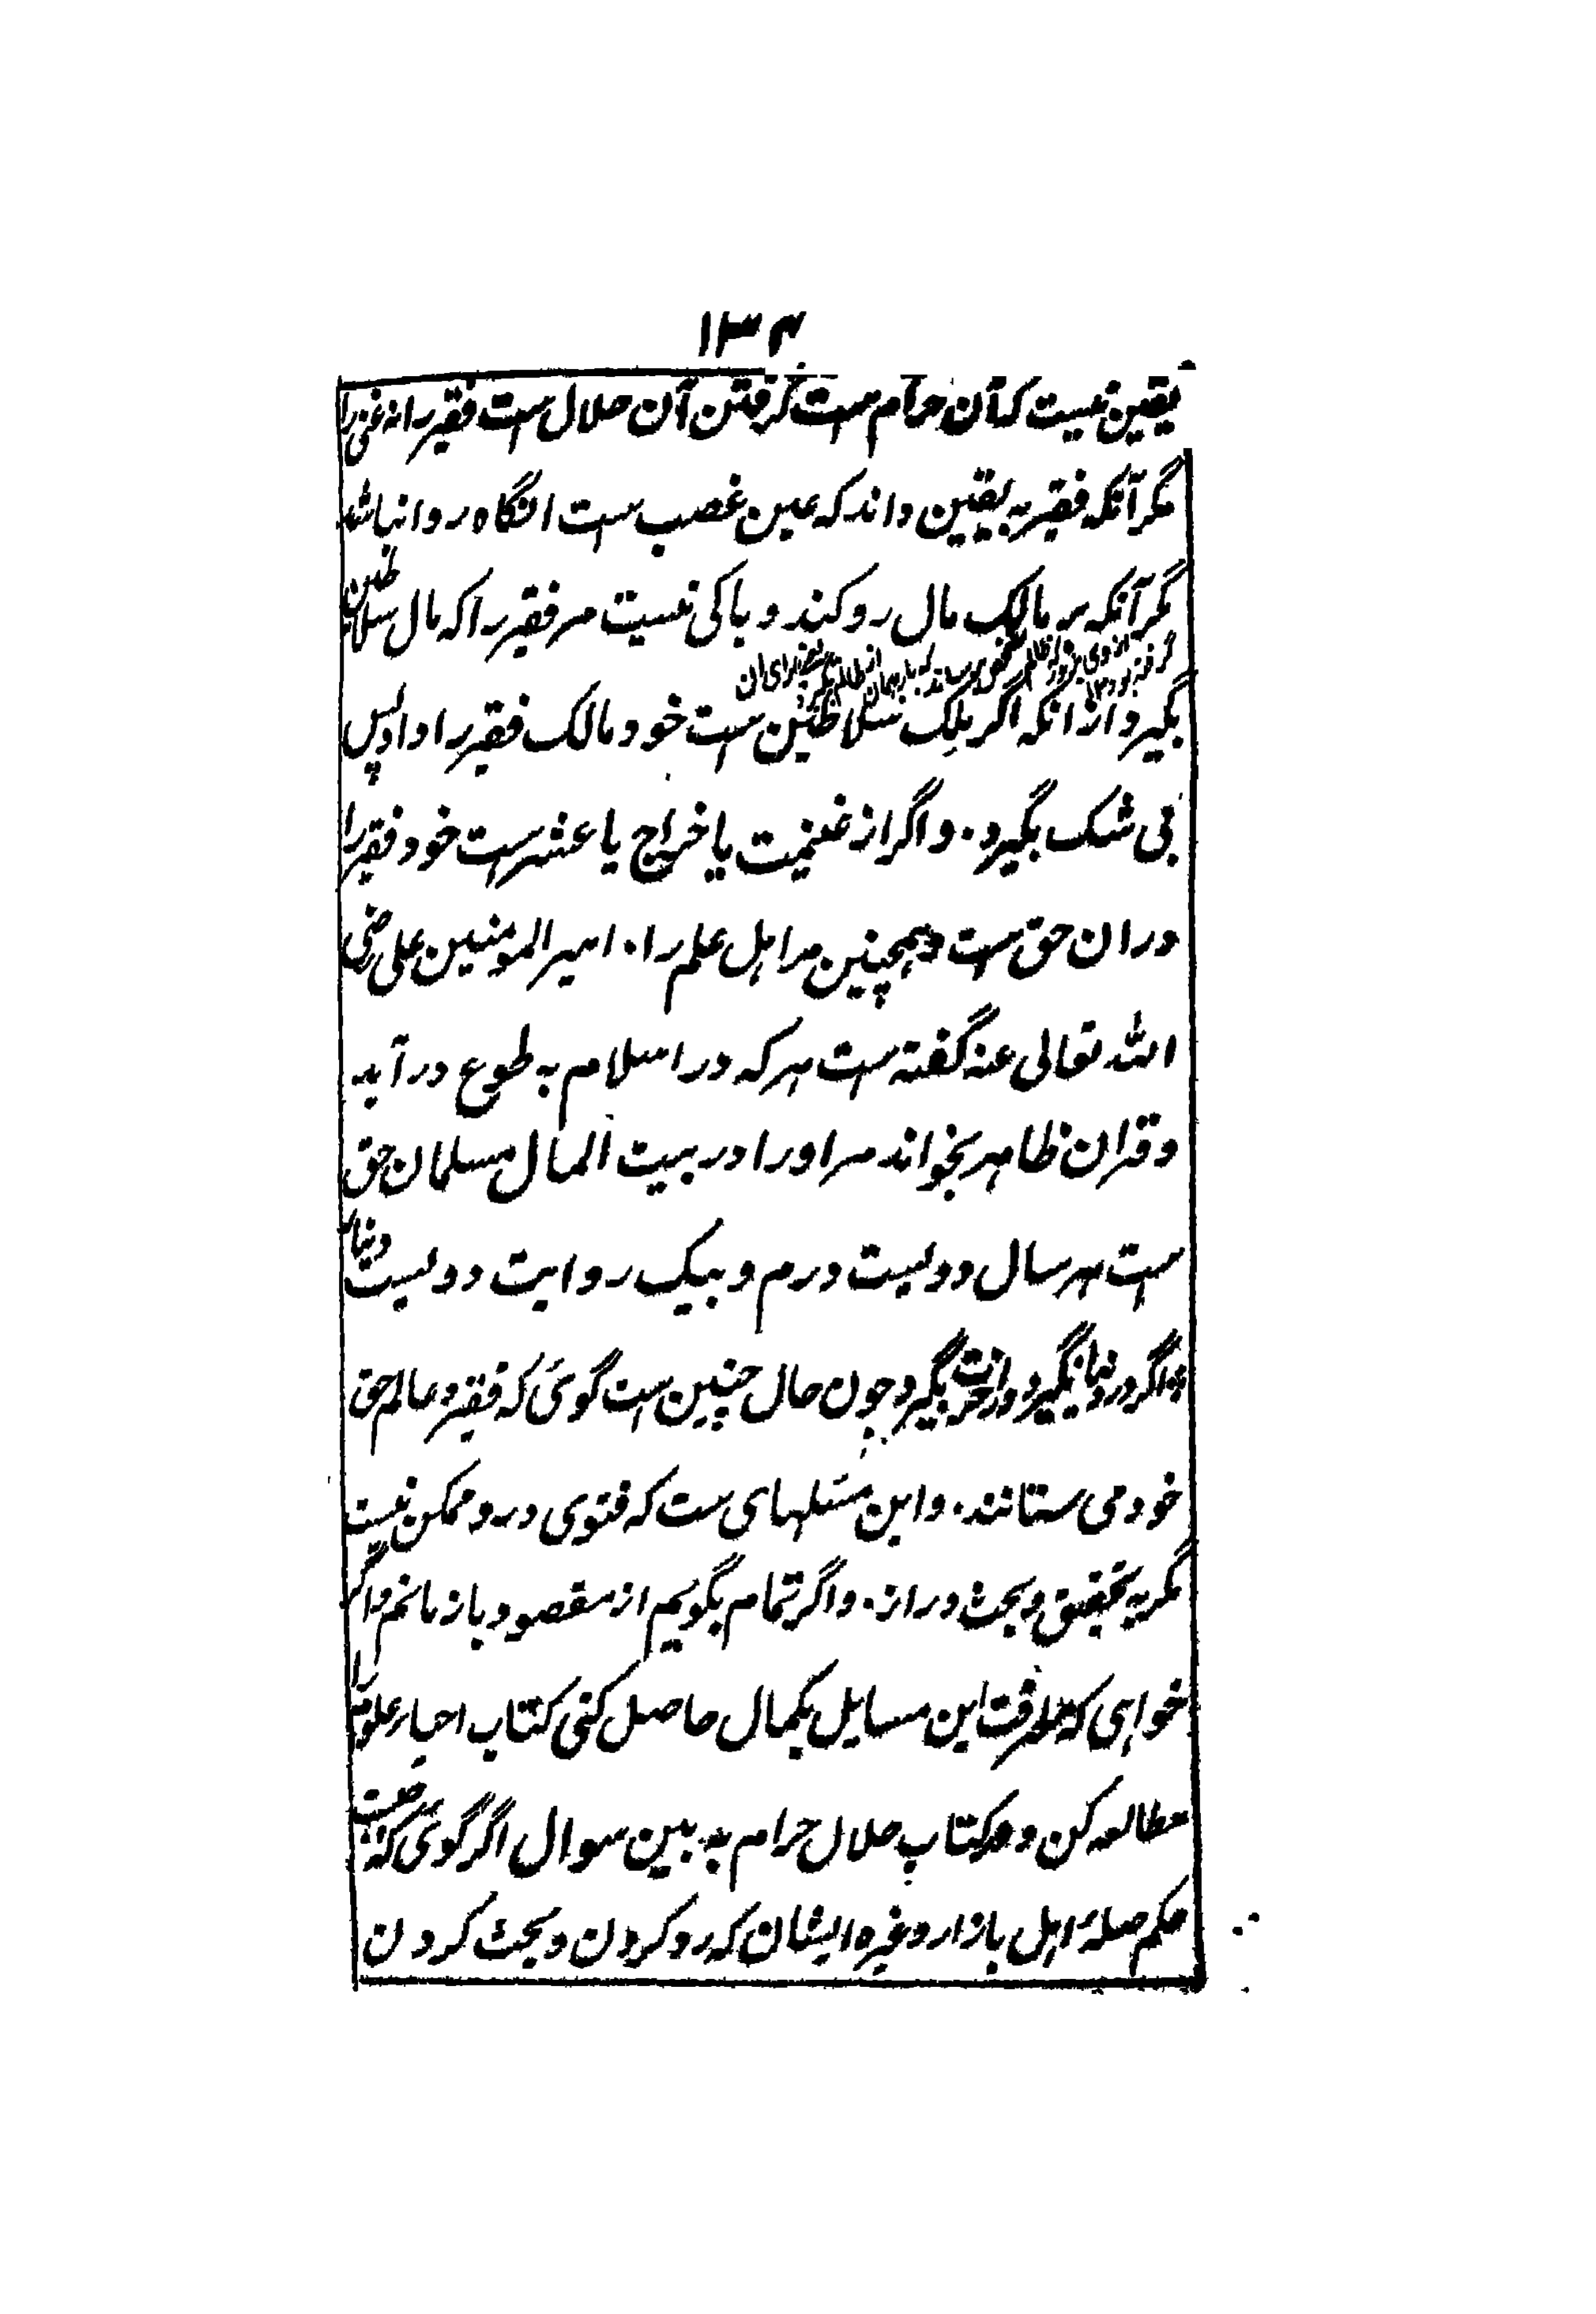 ۱۳۴
یقین نیست که آن حرام ست گرفتن آن حلال ست فقیر را نه غنی را
مگر آنکه فقیر به یقین داند که عین غصب ست انگاه روا نباشد
مگر آنکه بر مالک مال رد کند و باکی نیست مر فقیر را که مال سلاطین
بگیرد از انکه اگر ملک سلاطین ست خود مالک فقیر را داد پس
بی شک بگیرد. و اگر از غنیمت یا خراج یا عشرست خود فقیر را
دران حق ست و همچنین مر اهل علم را. امیر المومنین علی رضی
الله تعالی عنه گفته ست هر که در اسلام به طوع درآید
و قران ظاهر بخواند مر او را در بیت المال مسلمان حق
ست هر سال دویست درم و بیک روایت دویست دینار
و اگر در دنیا نگیرد در آخرت بگیرد چون حال چنین ست گوی که فقیر و عالم حق
خود می ستانند. و این مسئلهای ست که فتوی درو ممکن نیست
مگر به تحقیق و بحث دراز. و اگر تمام بگویم از مقصود باز مانم و اگر
خواهی که معرفت این مسایل بکمال حاصل کنی کتاب احیاء علوم را
مطالعه کن و در کتاب حلال حرام به بین سوال اگر گوی که چیست
حکم صلهٔ اهل بازار و غیره ایشان که رد کردن و بحث کردن